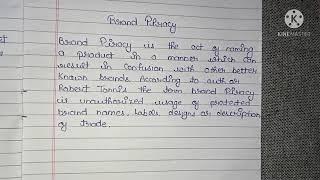 Brand Piracy
Brand Piracy is the act of naming
a product in a manner which can
result in confusion with other better
known brands. According to author
Robert Tonnis the term brand Piracy
is unauthorized usage of protected
brand names, labels, designs or description
of trade.
KINEMASTER